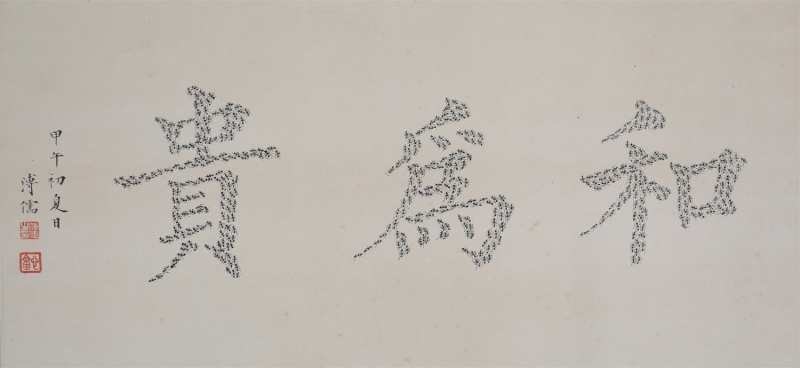 和為貴
甲午初夏日
溥儒